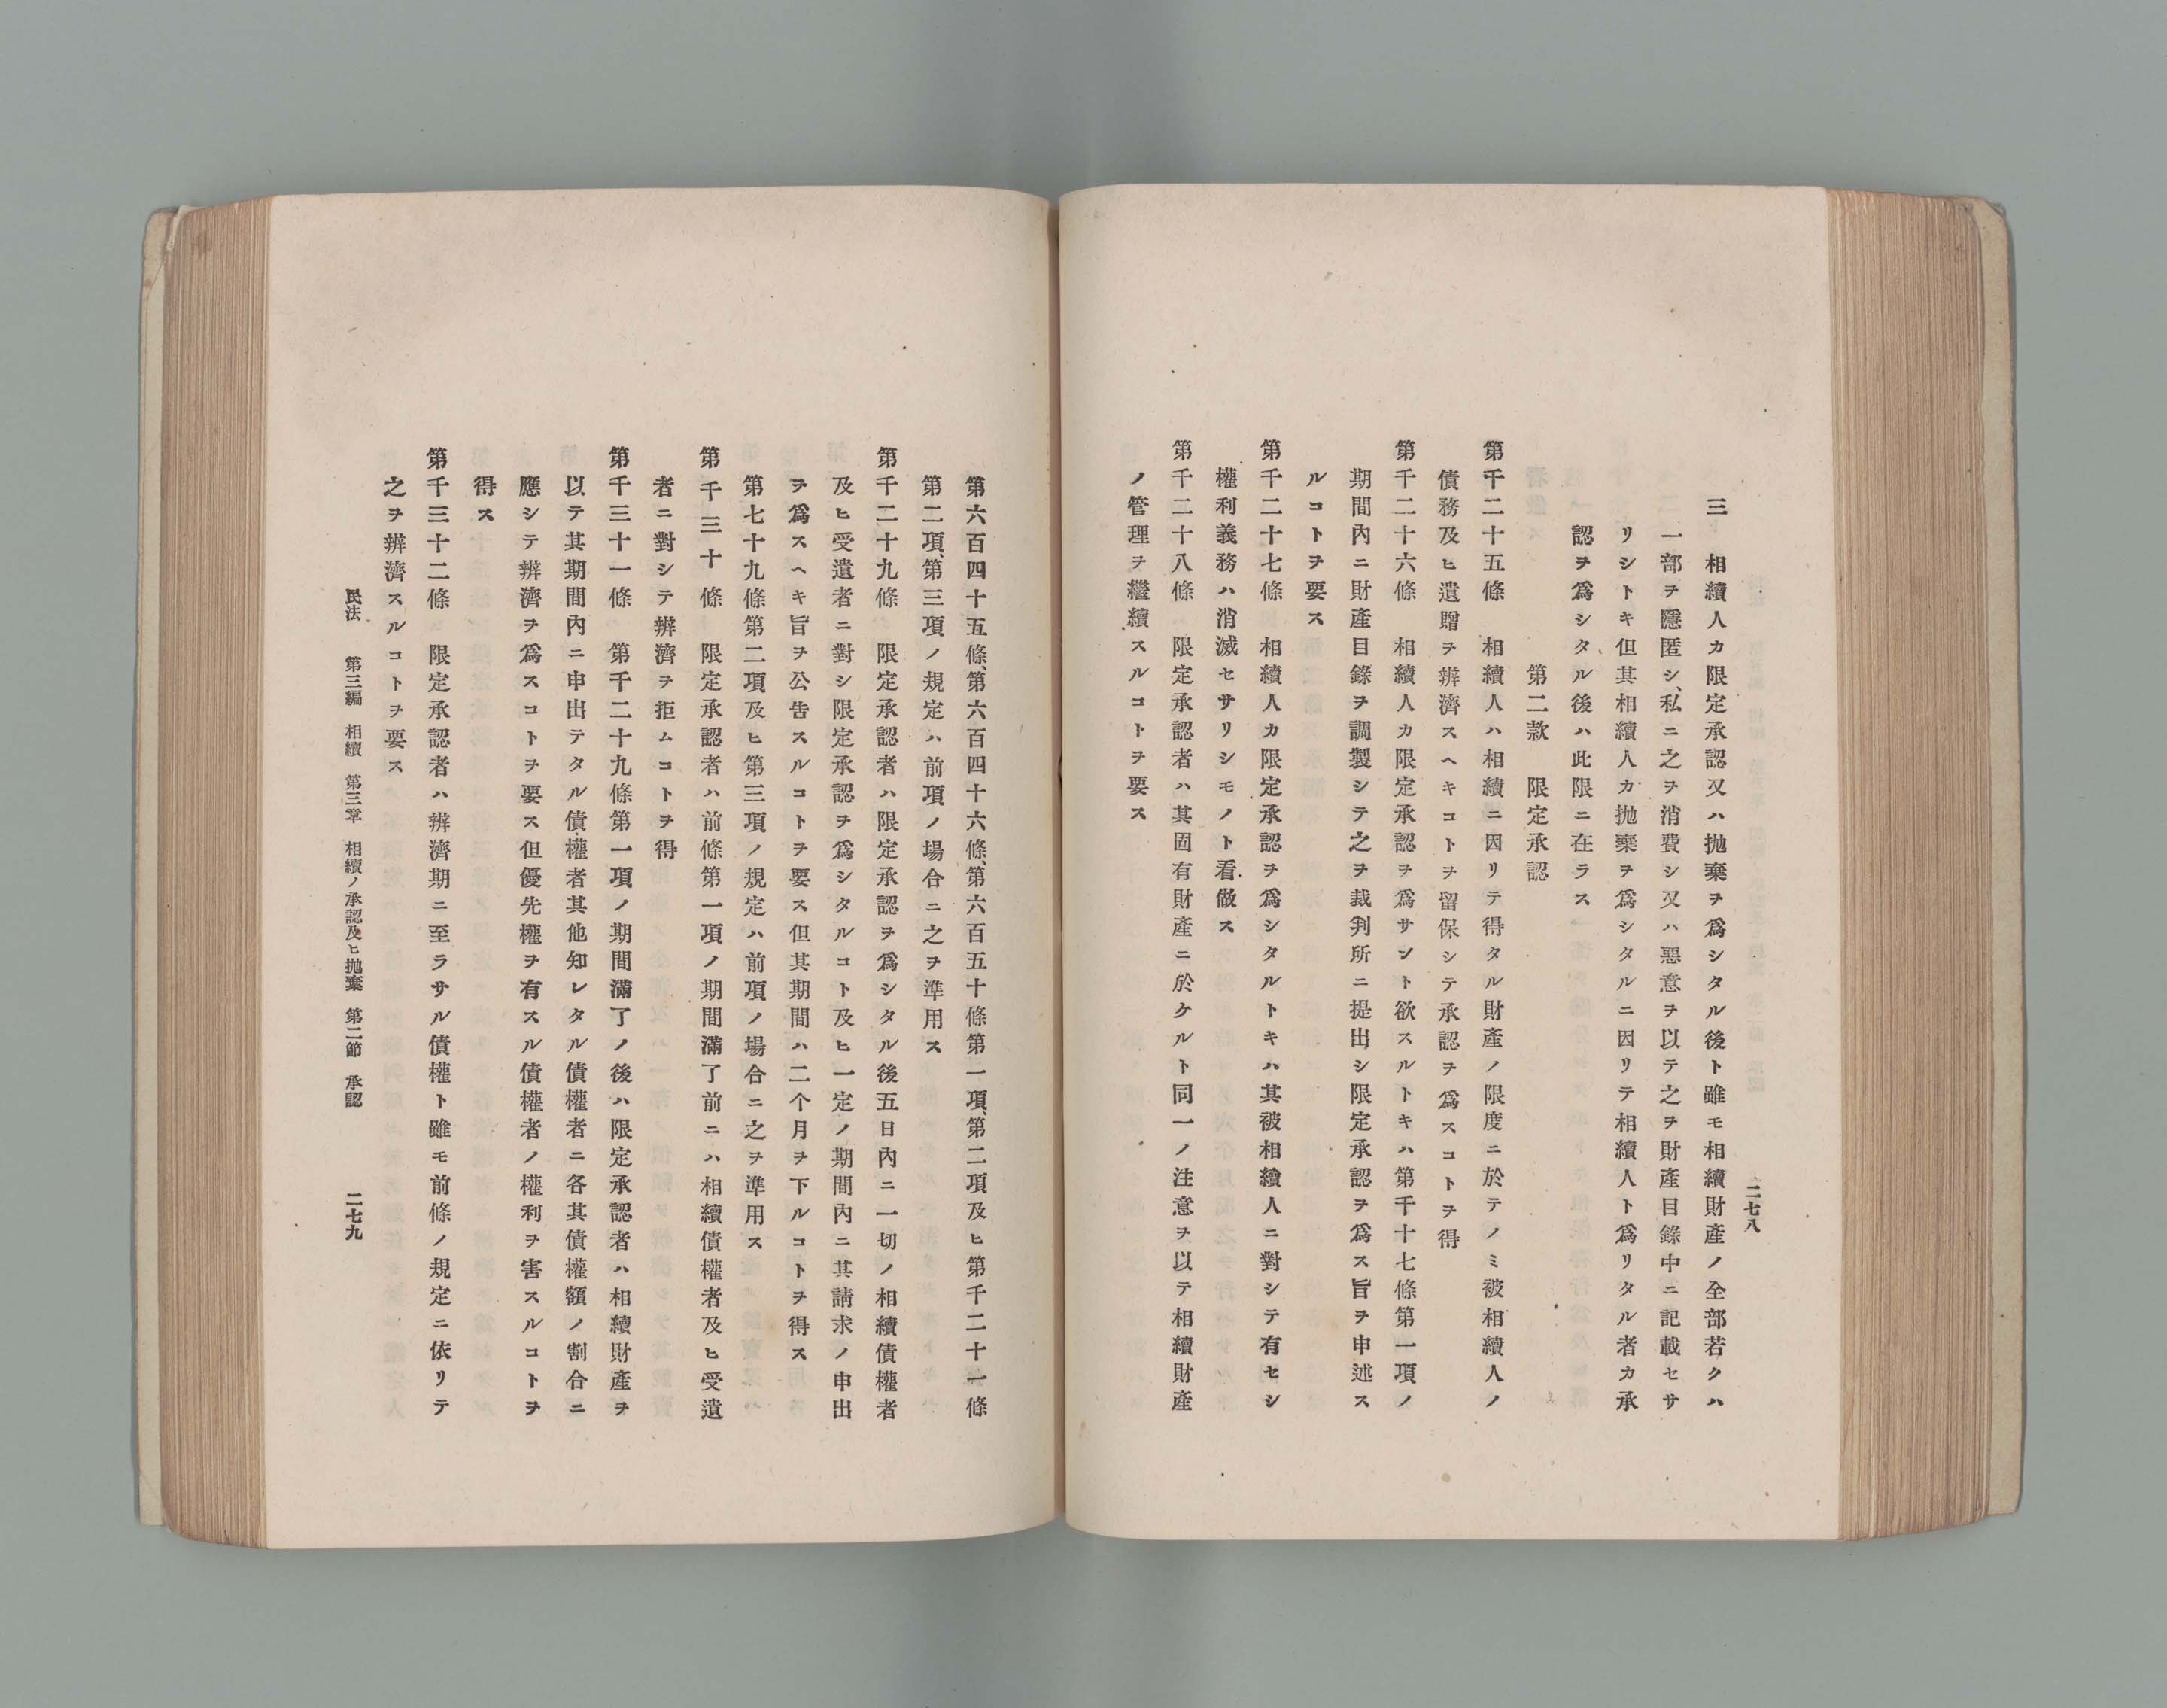 二七八
三　相續人カ限定承認又ハ抛棄ヲ爲シタル後ト雖モ相續財產ノ全部若クハ
一部ヲ隱匿シ、私ニ之ヲ消費シ又ハ惡意ヲ以テ之ヲ財產目錄中ニ記載セサ
リシトキ但其相續人カ抛棄ヲ爲シタルニ因リテ相續人ト爲リタル者カ承
認ヲ爲シタル後ハ此限ニ在ラス
第二款　限定承認
第千二十五條　相續人ハ相續ニ因リテ得タル財產ノ限度ニ於テノミ被相續人ノ
債務及ヒ遺贈ヲ辨濟スヘキコトヲ留保シテ承認ヲ爲スコトヲ得
第千二十六條　相續人カ限定承認ヲ爲サント欲スルトキハ第千十七條第一項ノ
期間內ニ財產目錄ヲ調製シテ之ヲ裁判所ニ提出シ限定承認ヲ爲ス旨ヲ申述ス
ルコトヲ要ス
第千二十七條　相續人カ限定承認ヲ爲シタルトキハ其被相續人ニ對シテ有セシ
權利義務ハ消滅セサリシモノト看做ス
第千二十八條　限定承認者ハ其固有財產ニ於ケルト同一ノ注意ヲ以テ相續財產
ノ管理ヲ繼續スルコトヲ要ス
第六百四十五條、第六百四十六條、第六百五十條第一項、第二項及ヒ第千二十一條
第二項、第三項ノ規定ハ前項ノ場合ニ之ヲ準用ス
第千二十九條　限定承認者ハ限定承認ヲ爲シタル後五日內ニ一切ノ相續債權者
及ヒ受遺者ニ對シ限定承認ヲ爲シタルコト及ヒ一定ノ期間內ニ其請求ノ申出
ヲ爲スヘキ旨ヲ公告スルコトヲ要ス但其期間ハ二个月ヲ下ルコトヲ得ス
第七十九條第二項及ヒ第三項ノ規定ハ前項ノ場合ニ之ヲ準用ス
第千三十條　限定承認者ハ前條第一項ノ期間滿了前ニハ相續債權者及ヒ受遺
者ニ對シテ辨濟ヲ拒ムコトヲ得
第千三十一條　第千二十九條第一項ノ期間滿了ノ後ハ限定承認者ハ相續財產ヲ
以テ其期間內ニ申出テタル債權者其他知レタル債權者ニ各其債權額ノ割合ニ
應シテ辨濟ヲ爲スコトヲ要ス但優先權ヲ有スル債權者ノ權利ヲ害スルコトヲ
得ス
第千三十二條　限定承認者ハ辨濟期ニ至ラサル債權ト雖モ前條ノ規定ニ依リテ
之ヲ辨濟スルコトヲ要ス
民法　第三編　相續　第三章　相續ノ承認及ヒ抛棄　第二節　承認　二七九